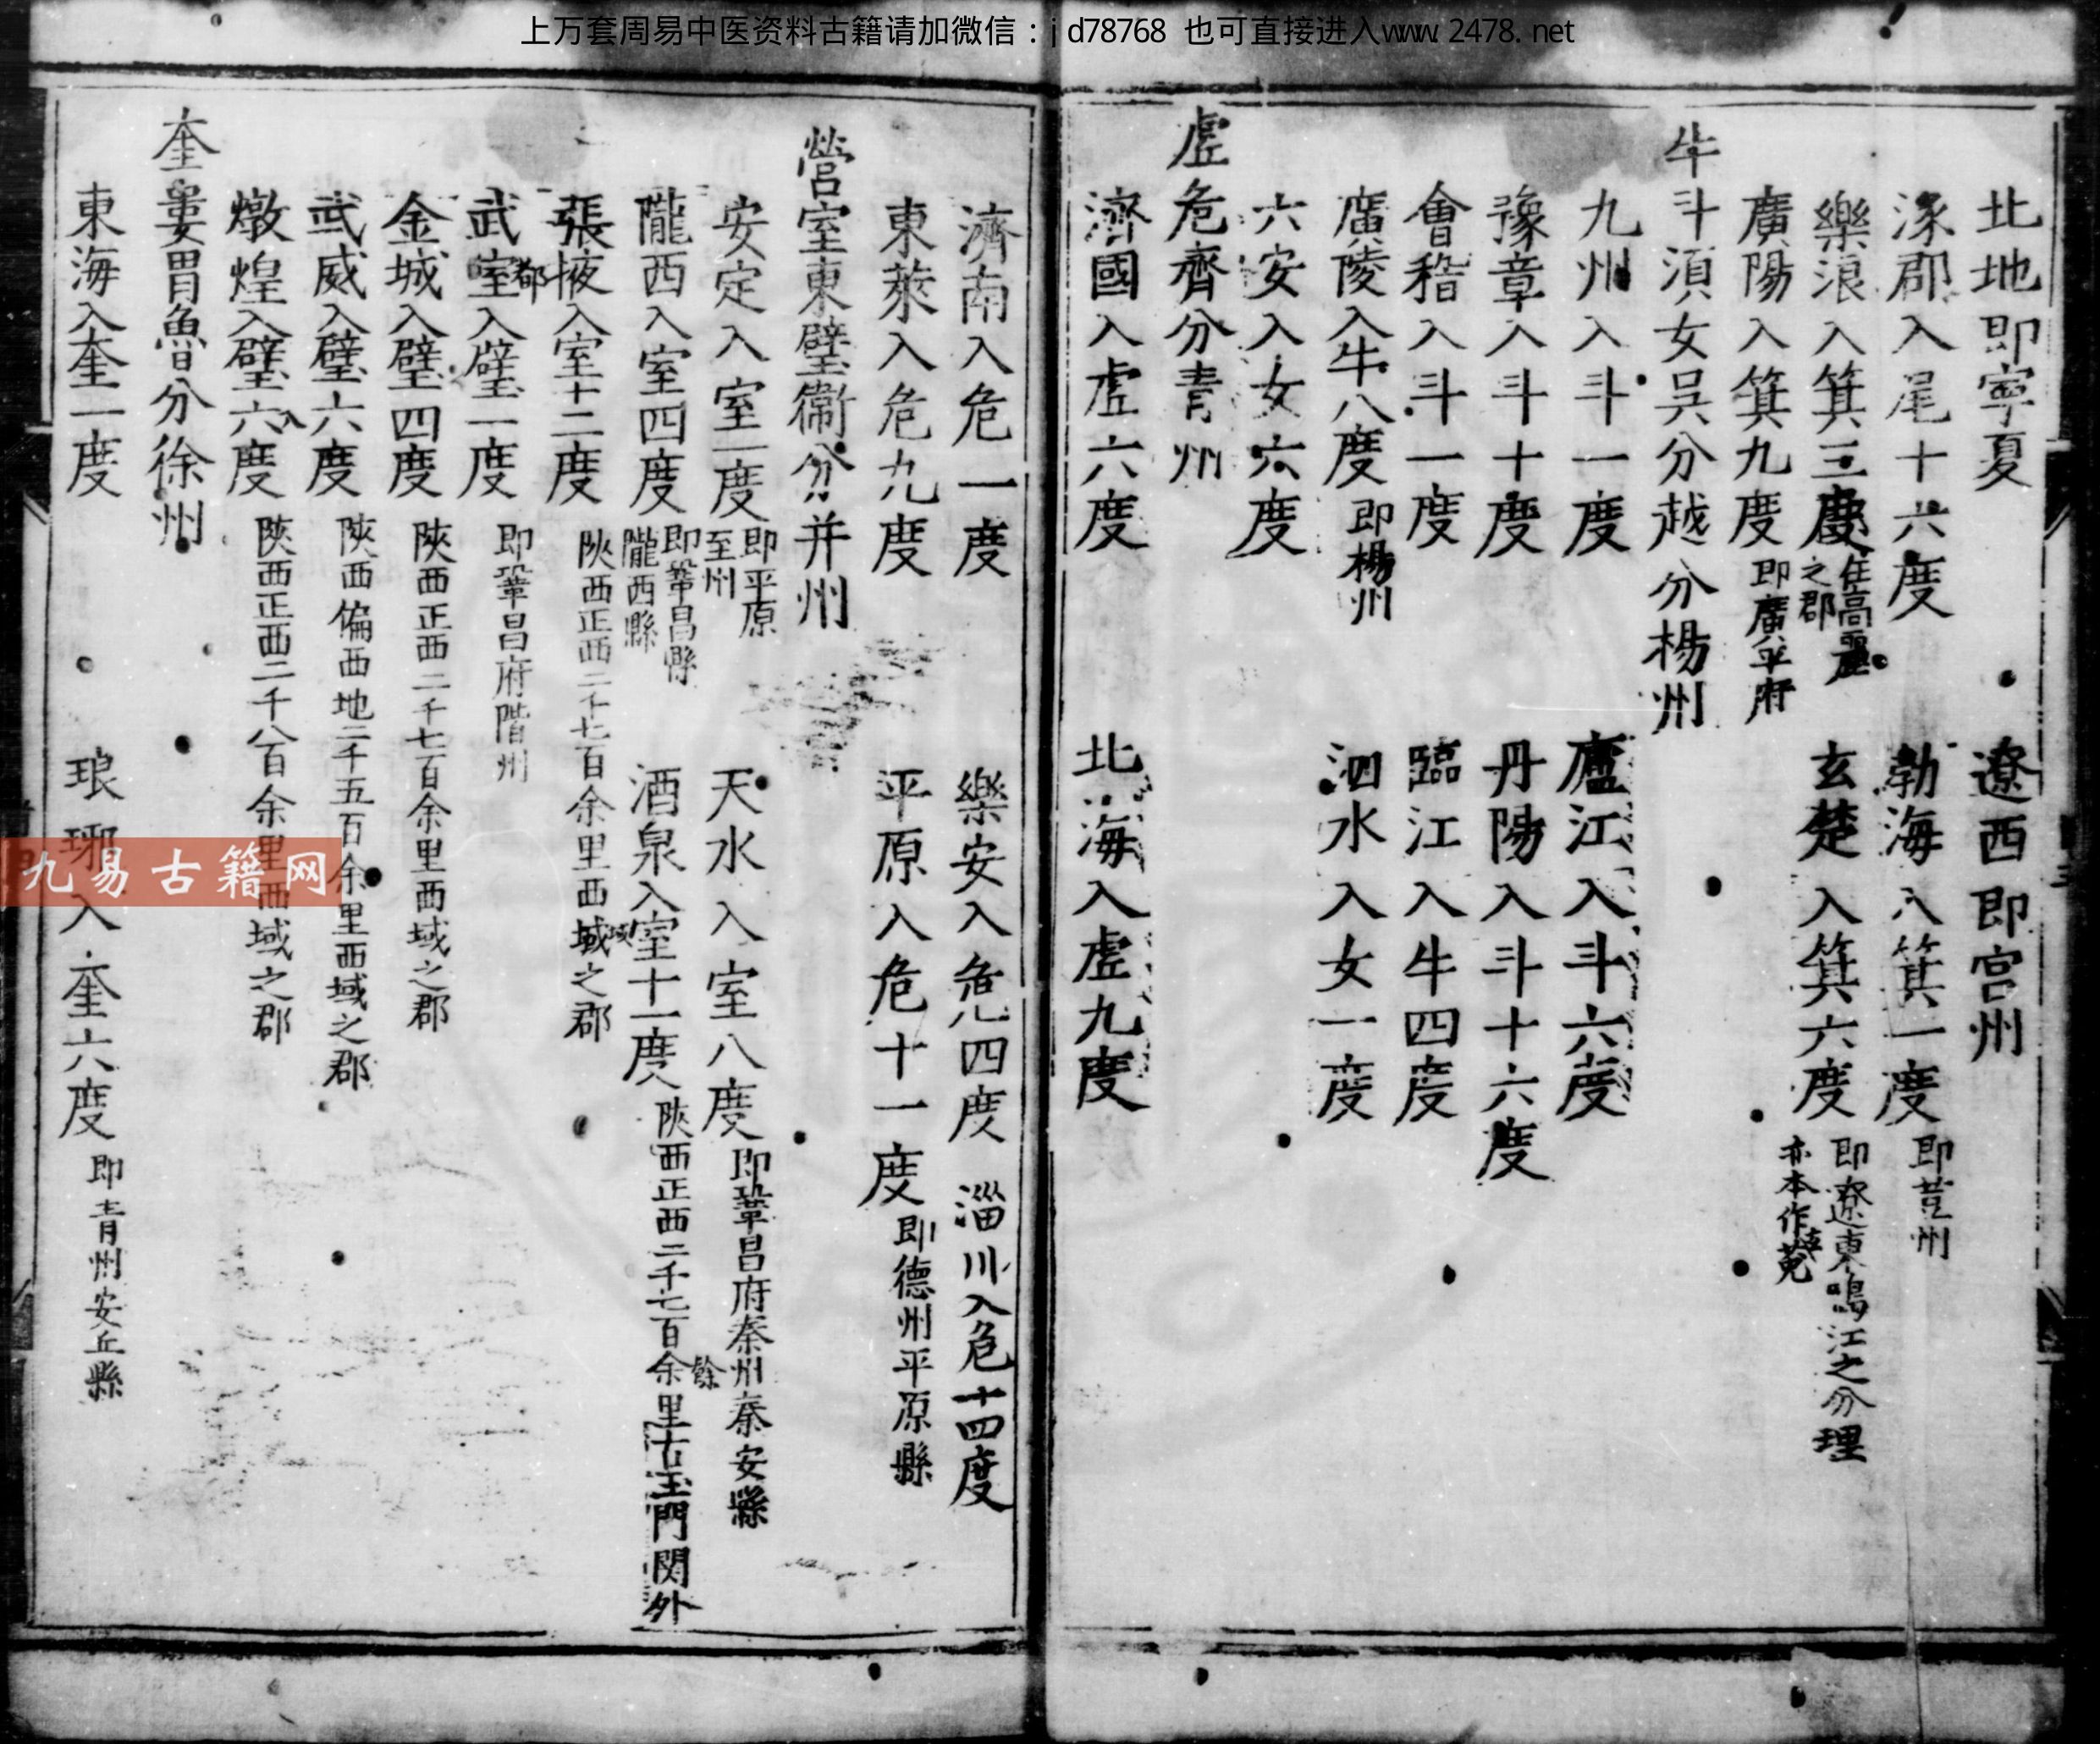 上万套周易中医资料古籍请加微信：jd78768 也可直接进入www.2478.net
北地即寧夏 遼西即宫州
涿郡入尾十六度 勃海入箕一度 即莒州
樂浪入箕三度 在高麗之郡 玄楚入箕六度 即遼東鳴江之分理 亦本作菟
廣陽入箕九度 即廣平府
牛斗湏女吳分越分楊州
九州入斗一度 廬江入斗六度
豫章入斗十度 丹陽入斗十六度
會稽入斗一度 臨江入牛四度
廣陵入牛八度 即楊州 泗水入女一度
六安入女六度
虚危齊分青州
濟國入虚六度 北海入虚九度
濟南入危一度 樂安入危四度 淄川入危十四度
東萊入危九度 平原入危十一度 即德州平原縣
營室東璧衛分并州
安定入室一度 即平原至州 天水入室八度 即鞏昌府秦州秦安縣
隴西入室四度 即鞏昌縣隴西縣 酒泉入室十一度 陝西正西二千七百余餘里古玉門関外
張掖入室十二度 陝西正西二千七百余里西域域之郡
武室都入璧一度 即鞏昌府階州
金城入璧四度 陝西正西二千七百余里西域之郡
武威入璧六度 陝西偏西地二千五百余里西域之郡
燉煌入璧六八度 陝西正西二千八百余里西域之郡
奎婁胃魯分徐州
東海入奎一度 琅琊入奎六度 即青州安丘縣
九易古籍网